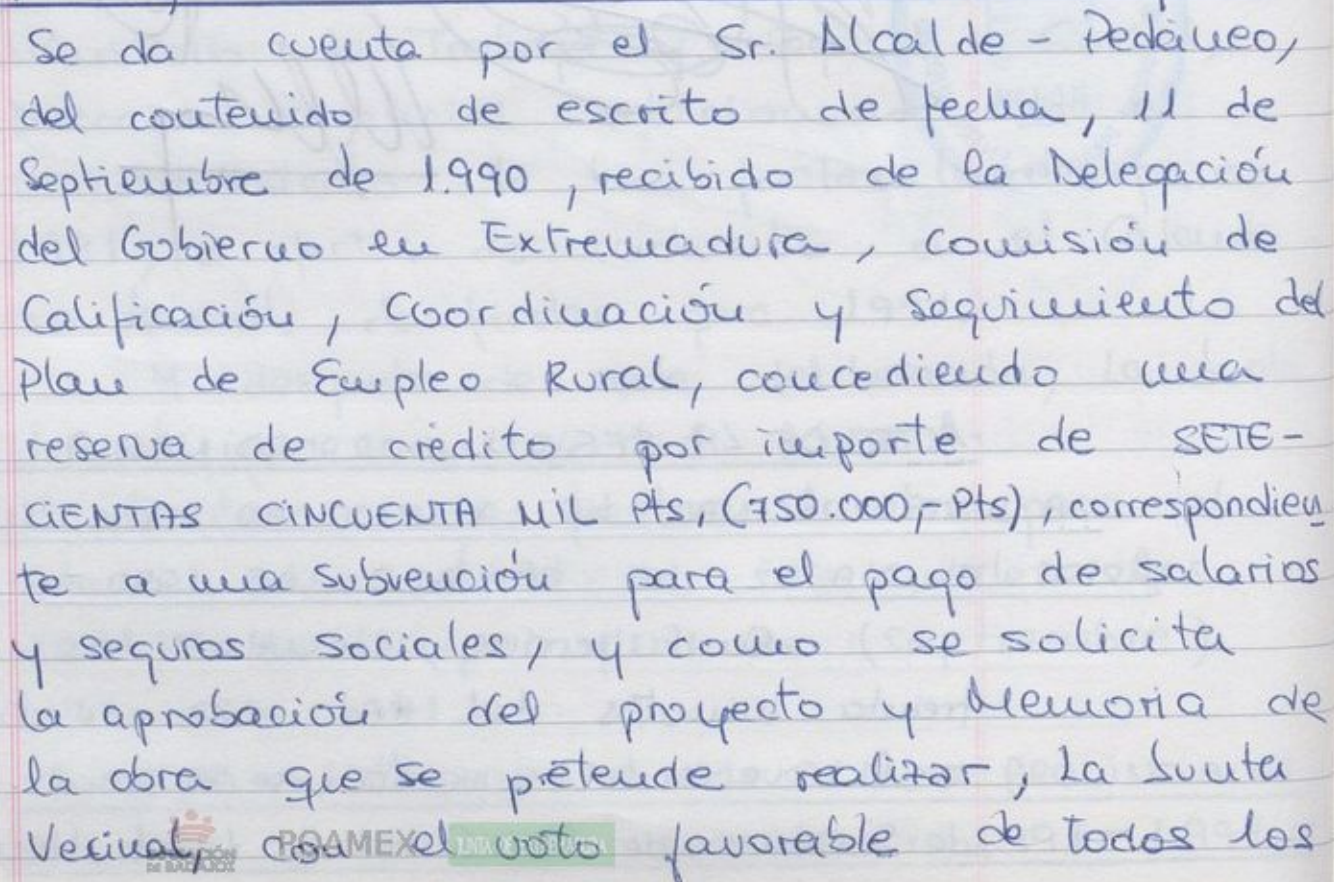 Se da cuenta por el Sr. Alcalde - Pedáneo,
del contenido de escrito de fecha, 11 de
Septiembre de 1.990, recibido de la Delegación
del Gobierno en Extremadura, comisión de
Calificación, Coordinación y Seguimiento del
Plan de Empleo Rural, concediendo una
reserva de crédito por importe de SETE-
CIENTAS CINCUENTA MIL Pts, (750.000,- Pts), correspondien
te a una subvención para el pago de salarios
y seguros sociales, y como se solicita
la aprobación del proyecto y Memoria de
la obra que se pretende realizar, La Junta
Vecinal, con el voto favorable de todos los
POAMEX